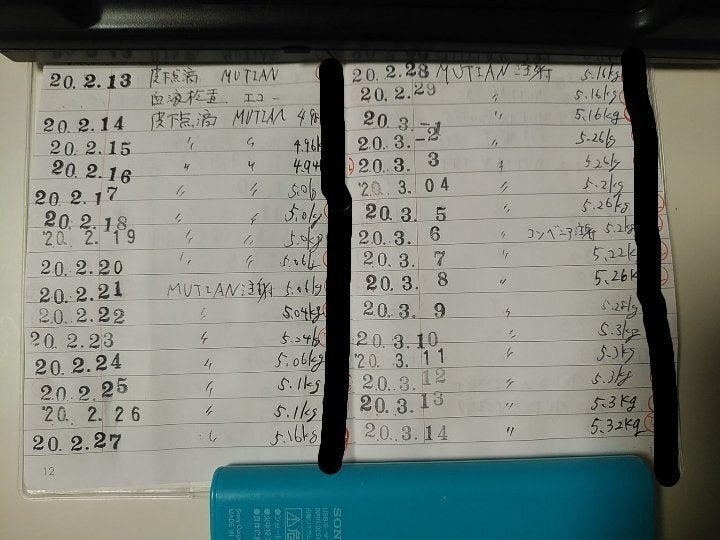 20.2.13 皮下点滴 MUTIAN
血液検査 エコー
20.2.14 皮下点滴 MUTIAN
20.2.15 〃 〃 4.96k
20.2.16 〃 〃 4.94
20.2.17 〃 〃
20.2.18 〃 〃 5.0kg
'20. 2.19 〃 〃 5.0kg
20.2.20 〃 〃
20.2.21 MUTIAN注射
20.2.22 〃 5.04kg
20.2.23 〃 5.04k
20.2.24 〃 5.06kg
20.2.25 〃 5.1kg
'20. 2.26 〃 5.1kg
20.2.27 〃 5.16kg
12
20.2.28 MUTIAN注射 5.16kg
20.2.29 〃 5.16kg
20.3.-1 〃 5.16kg
20.3.-2 〃 5.26kg
20.3. 3 〃
'20. 3.04 〃 5.2kg
20.3. 5 〃 5.26kg
20.3. 6 〃 コンベニア注射
20.3. 7 〃 5.22k
20.3. 8 〃 5.26k
20.3. 9 〃
20.3.10 〃 5.3kg
'20. 3.11 〃 5.3kg
20.3.12 〃 5.3kg
20.3.13 〃 5.3kg
20.3.14 〃 5.32kg
SONY